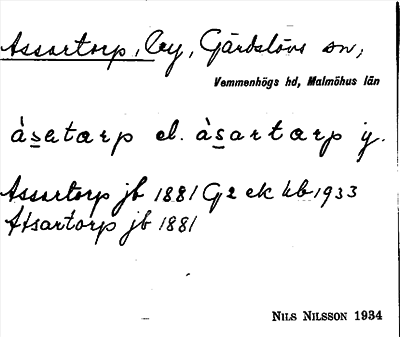 Assartorp, by, Gärdslövs sn,
Vemmenhögs hd, Malmöhus län
àsatærp el. àsartærp y.
Assartorp jb 1881 G2 ek kb 1933
Atsartorp jb 1881
NILS NILSSON 1934